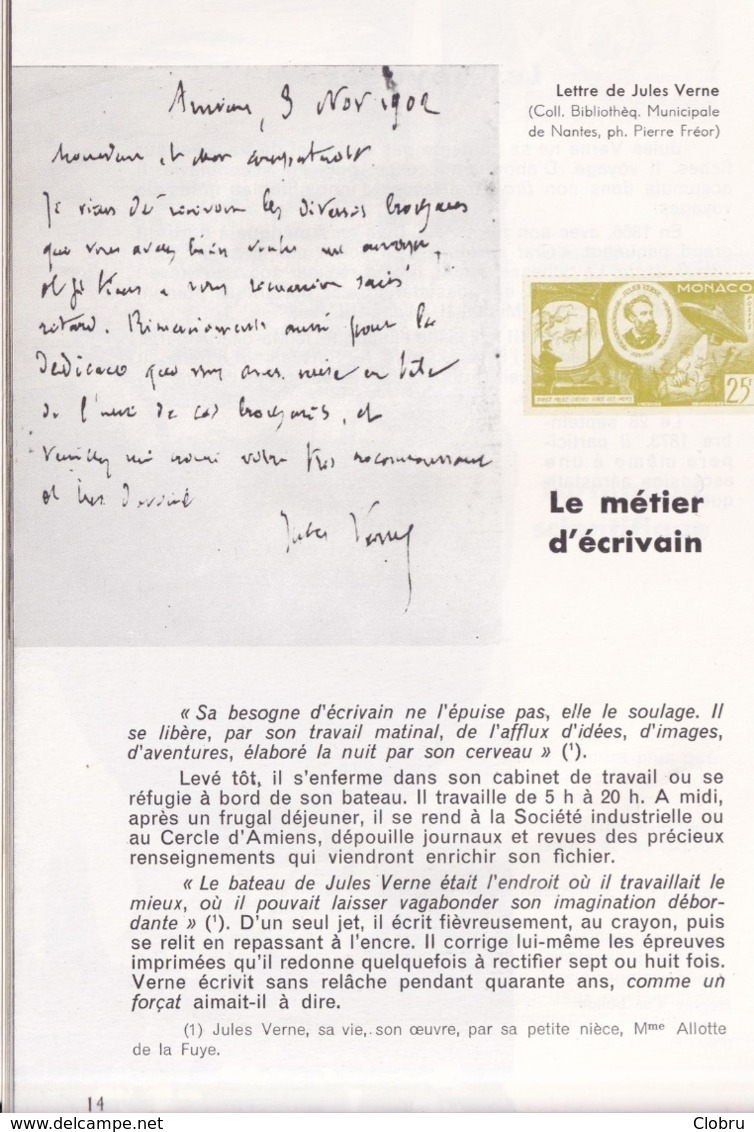 Amiens, 3 Nov 1902
Monsieur et cher compatriote
Je viens de recevoir les diverses brochures
que vous avez bien voulu me envoyer,
et je tiens à vous remercier sans
retard. Remerciements aussi pour la
dédicace que vous avez mise en tête
de l'une de ces brochures, et
veuillez me croire votre très reconnaissant
et très dévoué
Jules Verne
Lettre de Jules Verne
(Coll. Bibliothèq. Municipale
de Nantes, ph. Pierre Fréor)
JULES VERNE
MONACO
POSTES
25c
Le métier
d'écrivain
« Sa besogne d'écrivain ne l'épuise pas, elle le soulage. Il
se libère, par son travail matinal, de l'afflux d'idées, d'images,
d'aventures, élaboré la nuit par son cerveau » (¹).
Levé tôt, il s'enferme dans son cabinet de travail ou se
réfugie à bord de son bateau. Il travaille de 5 h à 20 h. A midi,
après un frugal déjeuner, il se rend à la Société industrielle ou
au Cercle d'Amiens, dépouille journaux et revues des précieux
renseignements qui viendront enrichir son fichier.
« Le bateau de Jules Verne était l'endroit où il travaillait le
mieux, où il pouvait laisser vagabonder son imagination débor-
dante » (¹). D'un seul jet, il écrit fièvreusement, au crayon, puis
se relit en repassant à l'encre. Il corrige lui-même les épreuves
imprimées qu'il redonne quelquefois à rectifier sept ou huit fois.
Verne écrivit sans relâche pendant quarante ans, comme un
forçat aimait-il à dire.
(1) Jules Verne, sa vie, son œuvre, par sa petite nièce, Mme Allotte
de la Fuye.
14
DELCAMPE.COM
Clobru